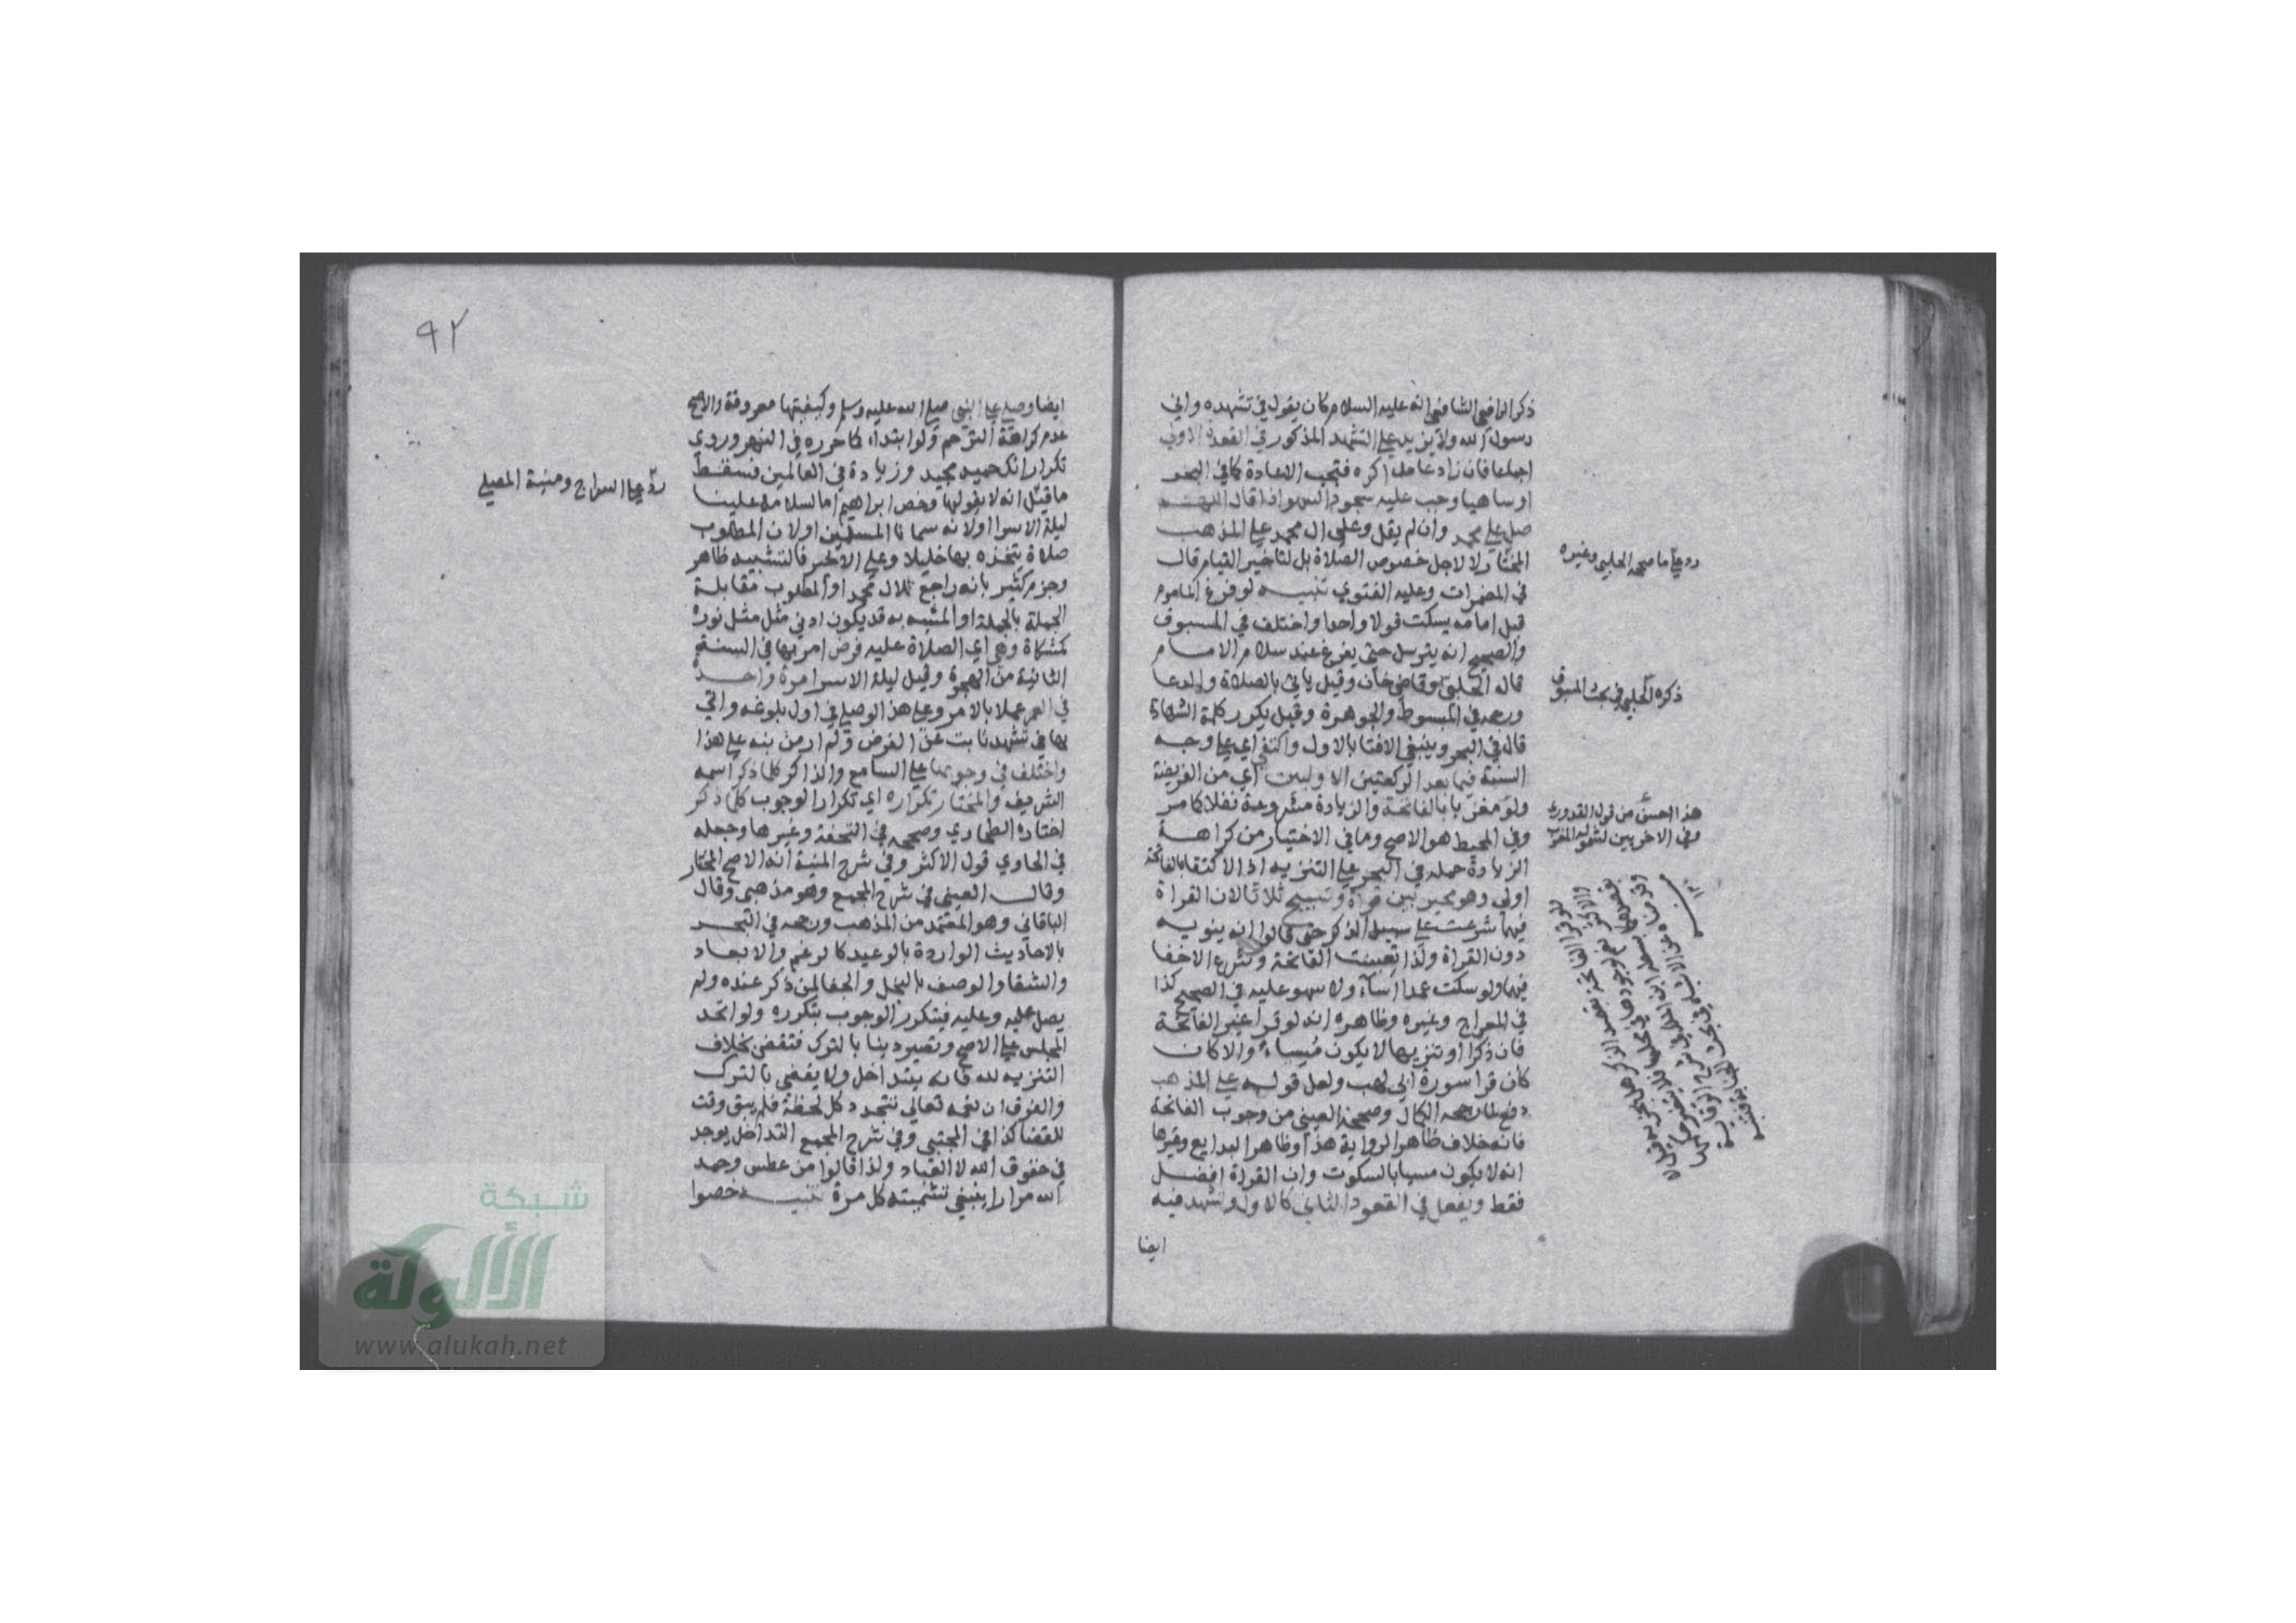 ذكر الرافعي الشافعي انه عليه السلام كان يقول في تشهده واني
رسول الله ولا يزيد علي التشهد المذكور في القعدة الاولي
اجماعا فان زاد عامدا كره فتجب الاعادة كما في البحر
او ساهيا وجب عليه سجود السهو اذا قال اللهم
صل علي محمد وان لم يقل وعلي ال محمد علي المذهب
المختار لا لاجل خصوص الصلاة بل لتاخير القيام قال
في المضمرات وعليه الفتوي تنبيه لو فرغ الماموم
قبل امامه يسكت قولا واحدا واختلف في المسبوق
والصحيح انه يترسل حتي يفرغ عند سلام الامام
قاله الحلبي وقاضي خان وقيل ياتي بالصلاة والدعا
ورجحه في المبسوط والجوهرة وقيل يكرر كلمة الشهادة
قال في البحر وينبغي الافتا بالاول واكتفي اي علي وجه
السنة فيما بعد الركعتين الاوليين اي من الفريضة
ولو مغربا بالفاتحة والزيادة مشروعة نفلا كما مر
وفي المحيط هو الاصح وما في الاختيار من كراهة
الزيادة حمله في البحر علي التنزيه اذ الاكتفا بالفاتحة
اولي وهو مخير بين قراة وتسبيح ثلاثا لان القراة
فيهما شرعت علي سبيل الذكر حتي قالوا انه ينويه
دون القراة ولذا تعينت الفاتحة وشرع الاخفا
فيهما ولو سكت عمدا اسآء ولا سهو عليه في الصحيح كذا
في المعراج وغيره وظاهره انه لو قرا غير الفاتحة
فان ذكرا او تنزيها لا يكون مسياء والا كان
كان قرا سورة ابي لهب ولعل قوله علي المذهب
دفع لما رجحه الكمال وصححه العيني من وجوب الفاتحة
فانه خلاف ظاهر الرواية هذا وظاهر البدايع وغيرها
انه لا يكون مسيا بالسكوت وان القراة افضل
فقط ويفعل في القعود الثاني كالاول وتشهد فيه
ايضا
رد علي ما صححه الحلبي وغيره
ذكره الحلبي في بحث المسبوق
هذا احسن من قول القدوري
وفي الاخريين لشموله المغرب
٩٢
ايضا وصلي علي النبي صلي الله عليه وسلم وكيفيتها معروفة والاصح
عدم كراهة الترحم ولو ابتداء كما حرره في النهر وروي
تكرار انك حميد مجيد وزيادة في العالمين فسقط
ما قيل انه لا يقولها وخص ابراهيم اما لسلامه علينا
ليلة الاسرا او لانه سمانا المسلمين او لان المطلوب
صلاة يتخذه بها خليلا وعلي الاخير فالتشبيه ظاهر
وجزم كثير بانه راجع لال محمد او المطلوب مقابلة
الجملة بالجملة او المشبه به قد يكون ادني مثل مثل نوره
كمشكاة وهي اي الصلاة عليه فرض امر بها في السنة
الثانية من الهجرة وقيل ليلة الاسرا مرة واحدة
في العمر عملا بالامر وعلي هذا لو صلي في اول بلوغه واتي
بها في تشهد نابت عن الفرض ولم ار من نبه علي هذا
واختلف في وجوبها علي السامع والذاكر كلما ذكر اسمه
الشريف والمختار تكراره اي تكرار الوجوب كلما ذكر
اختاره الطحاوي وصححه في التحفة وغيرها وجعله
في الحاوي قول الاكثر وفي شرح المنية انه الاصح المختار
وقال العيني في شرح المجمع وهو مذهبي وقال
الباقاني وهو المعتمد من المذهب ورجحه في البحر
بالاحاديث الواردة بالوعيد كالرغم والابعاد
والشقا والوصف بالبخل والجفا لمن ذكر عنده ولم
يصل عليه وعليه فيتكرر الوجوب بتكرره ولو اتحد
المجلس علي الاصح وتصير دينا بالترك فتقضي بخلاف
التنزيه لله فانه يتداخل ولا يقضي بالترك
والفرق ان نعمه تعالي تتجدد كل لحظة فلم يبق وقت
للقضا كذا في المجتبي وفي شرح المجمع التداخل يوجد
في حقوق الله لا العباد ولذا قالوا من عطس وحمد
الله مرارا ينبغي تشميته كل مرة تنبيه خصوا
رد علي السراج ومنية المصلي
شبكة
الألوكة
www.alukah.net